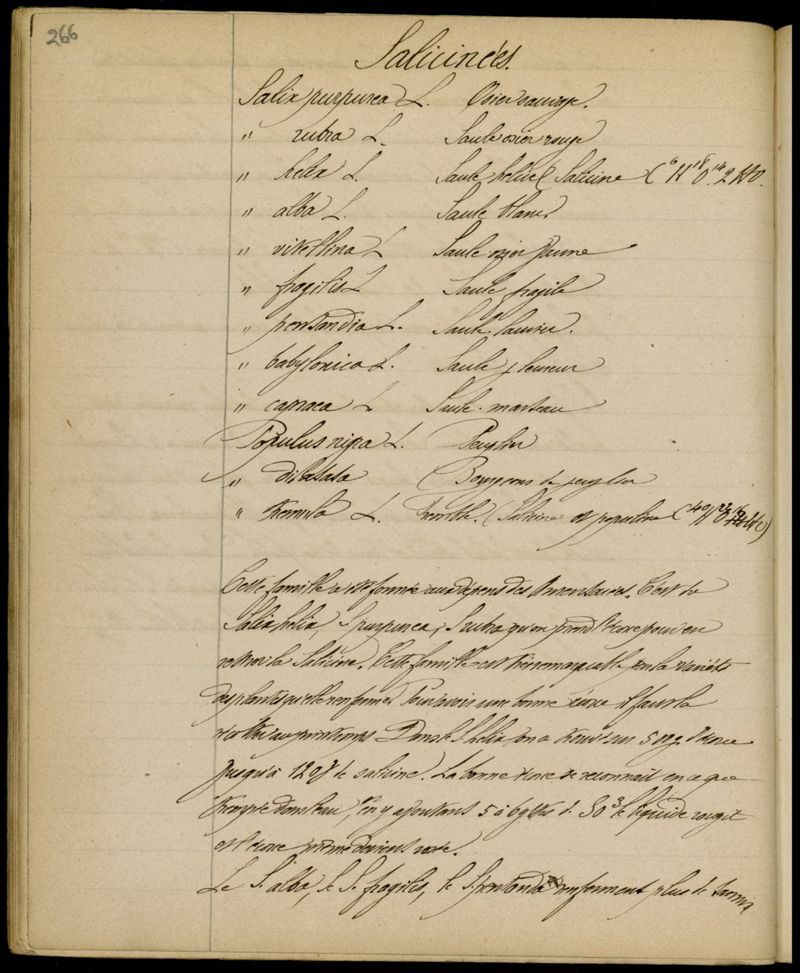 266
Salicinées.
Salix purpurea L. Osier sauvage.
" rubra L. Saule osier rouge
" helix L. Saule hélice (Salicine C⁶H¹⁸O¹⁴ 2HO.
" alba L. Saule blanc
" vitellina L Saule osier jaune
" fragilis L Saule fragile
" pentandria L. Saule laurier.
" babylonica L. Saule pleureur
" capraea L Saule marceau
Populus nigra L. Peuplier
" dilatata (Bourgeons de peuplier
" tremula L. Tremble. (Salicine et populine C⁴⁰H²²O¹⁶
Cette famille a été formée aux dépens des Amentacées. C'est du
Salix helix, S purpurea, S rubra qu'on prend l'écorce pour en
retirer la Salicine. Cette famille est très remarquable par la variété
des plantes qu'elle renferme. Pour avoir une bonne écorce il faut la
récolter au printemps. Dans le S. helix on a trouvé sur 500g d'écorce
jusqu'à 12 gr de salicine. La bonne écorce se reconnaît en ce que
trempée dans l'eau, en y ajoutant 5 à 6 gttes d. SO³ le liquide rougit
et l'écorce même devient rose.
Le S. alba, le S. fragilis, le S. pentandra renferment plus de tannin